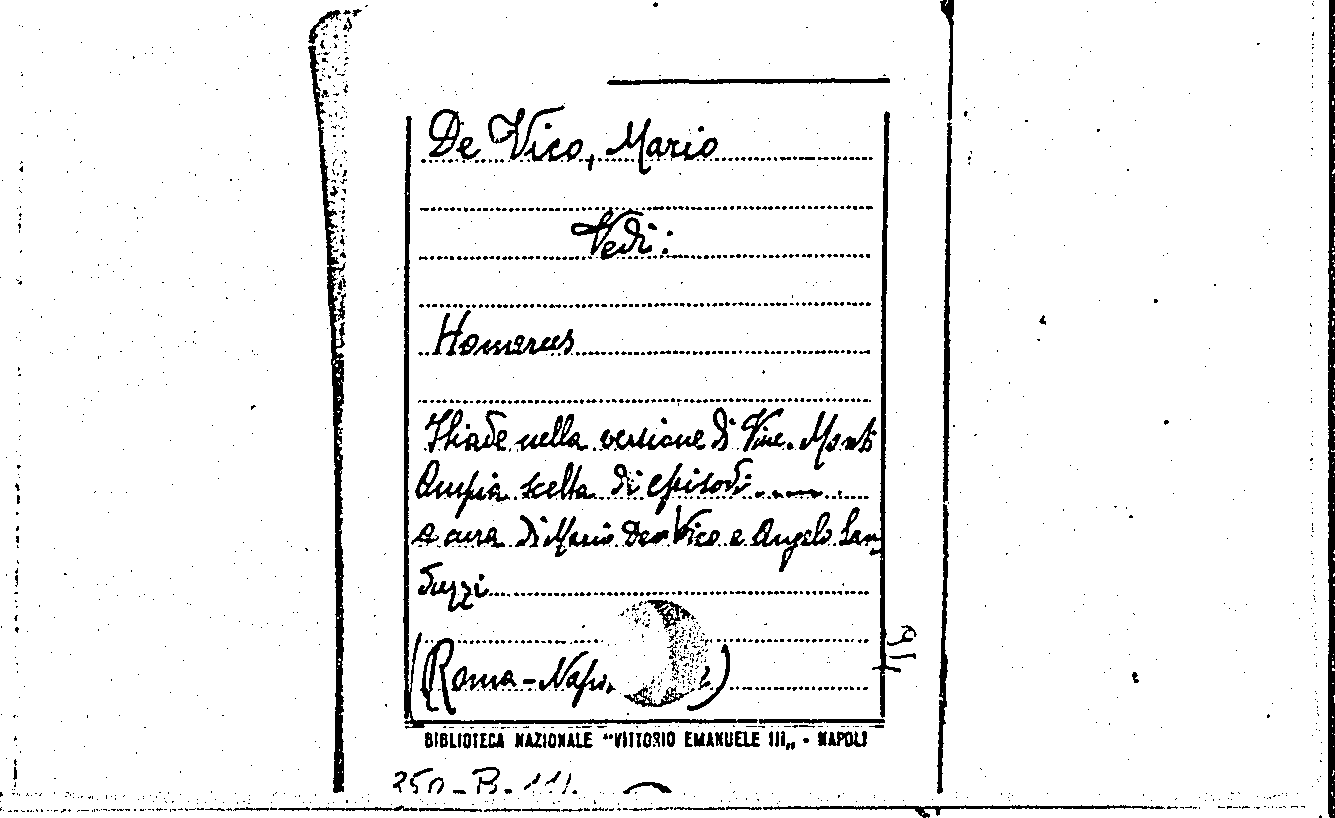 De Vico, Mario
Vedi:
Homerus
Iliade nella versione di Vinc. Monti
Ampia scelta di episodi......
a cura di Mario Den Vico e Angelo San
duzzi
(Roma-Nap
BIBLIOTECA NAZIONALE "VITTORIO EMANUELE III„ - NAPOLI
250-B-111.